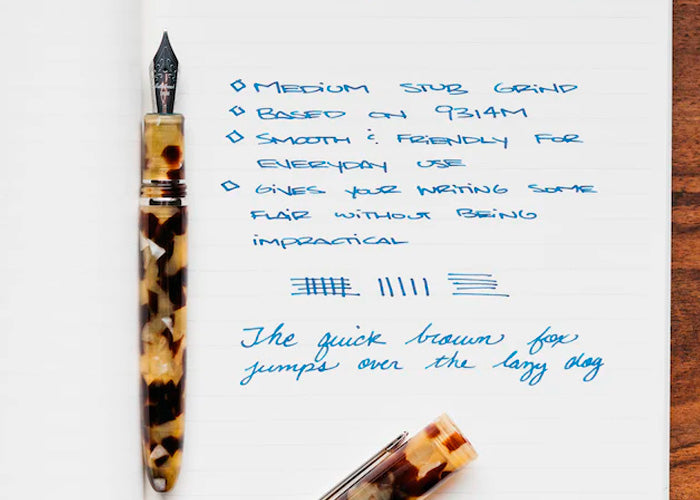 ◇ MEDIUM STUB GRIND
◇ BASED ON 9314M
◇ SMOOTH & FRIENDLY FOR
EVERYDAY USE
◇ GIVES YOUR WRITING SOME
FLAIR WITHOUT BEING
IMPRACTICAL
The quick brown fox
jumps over the lazy dog